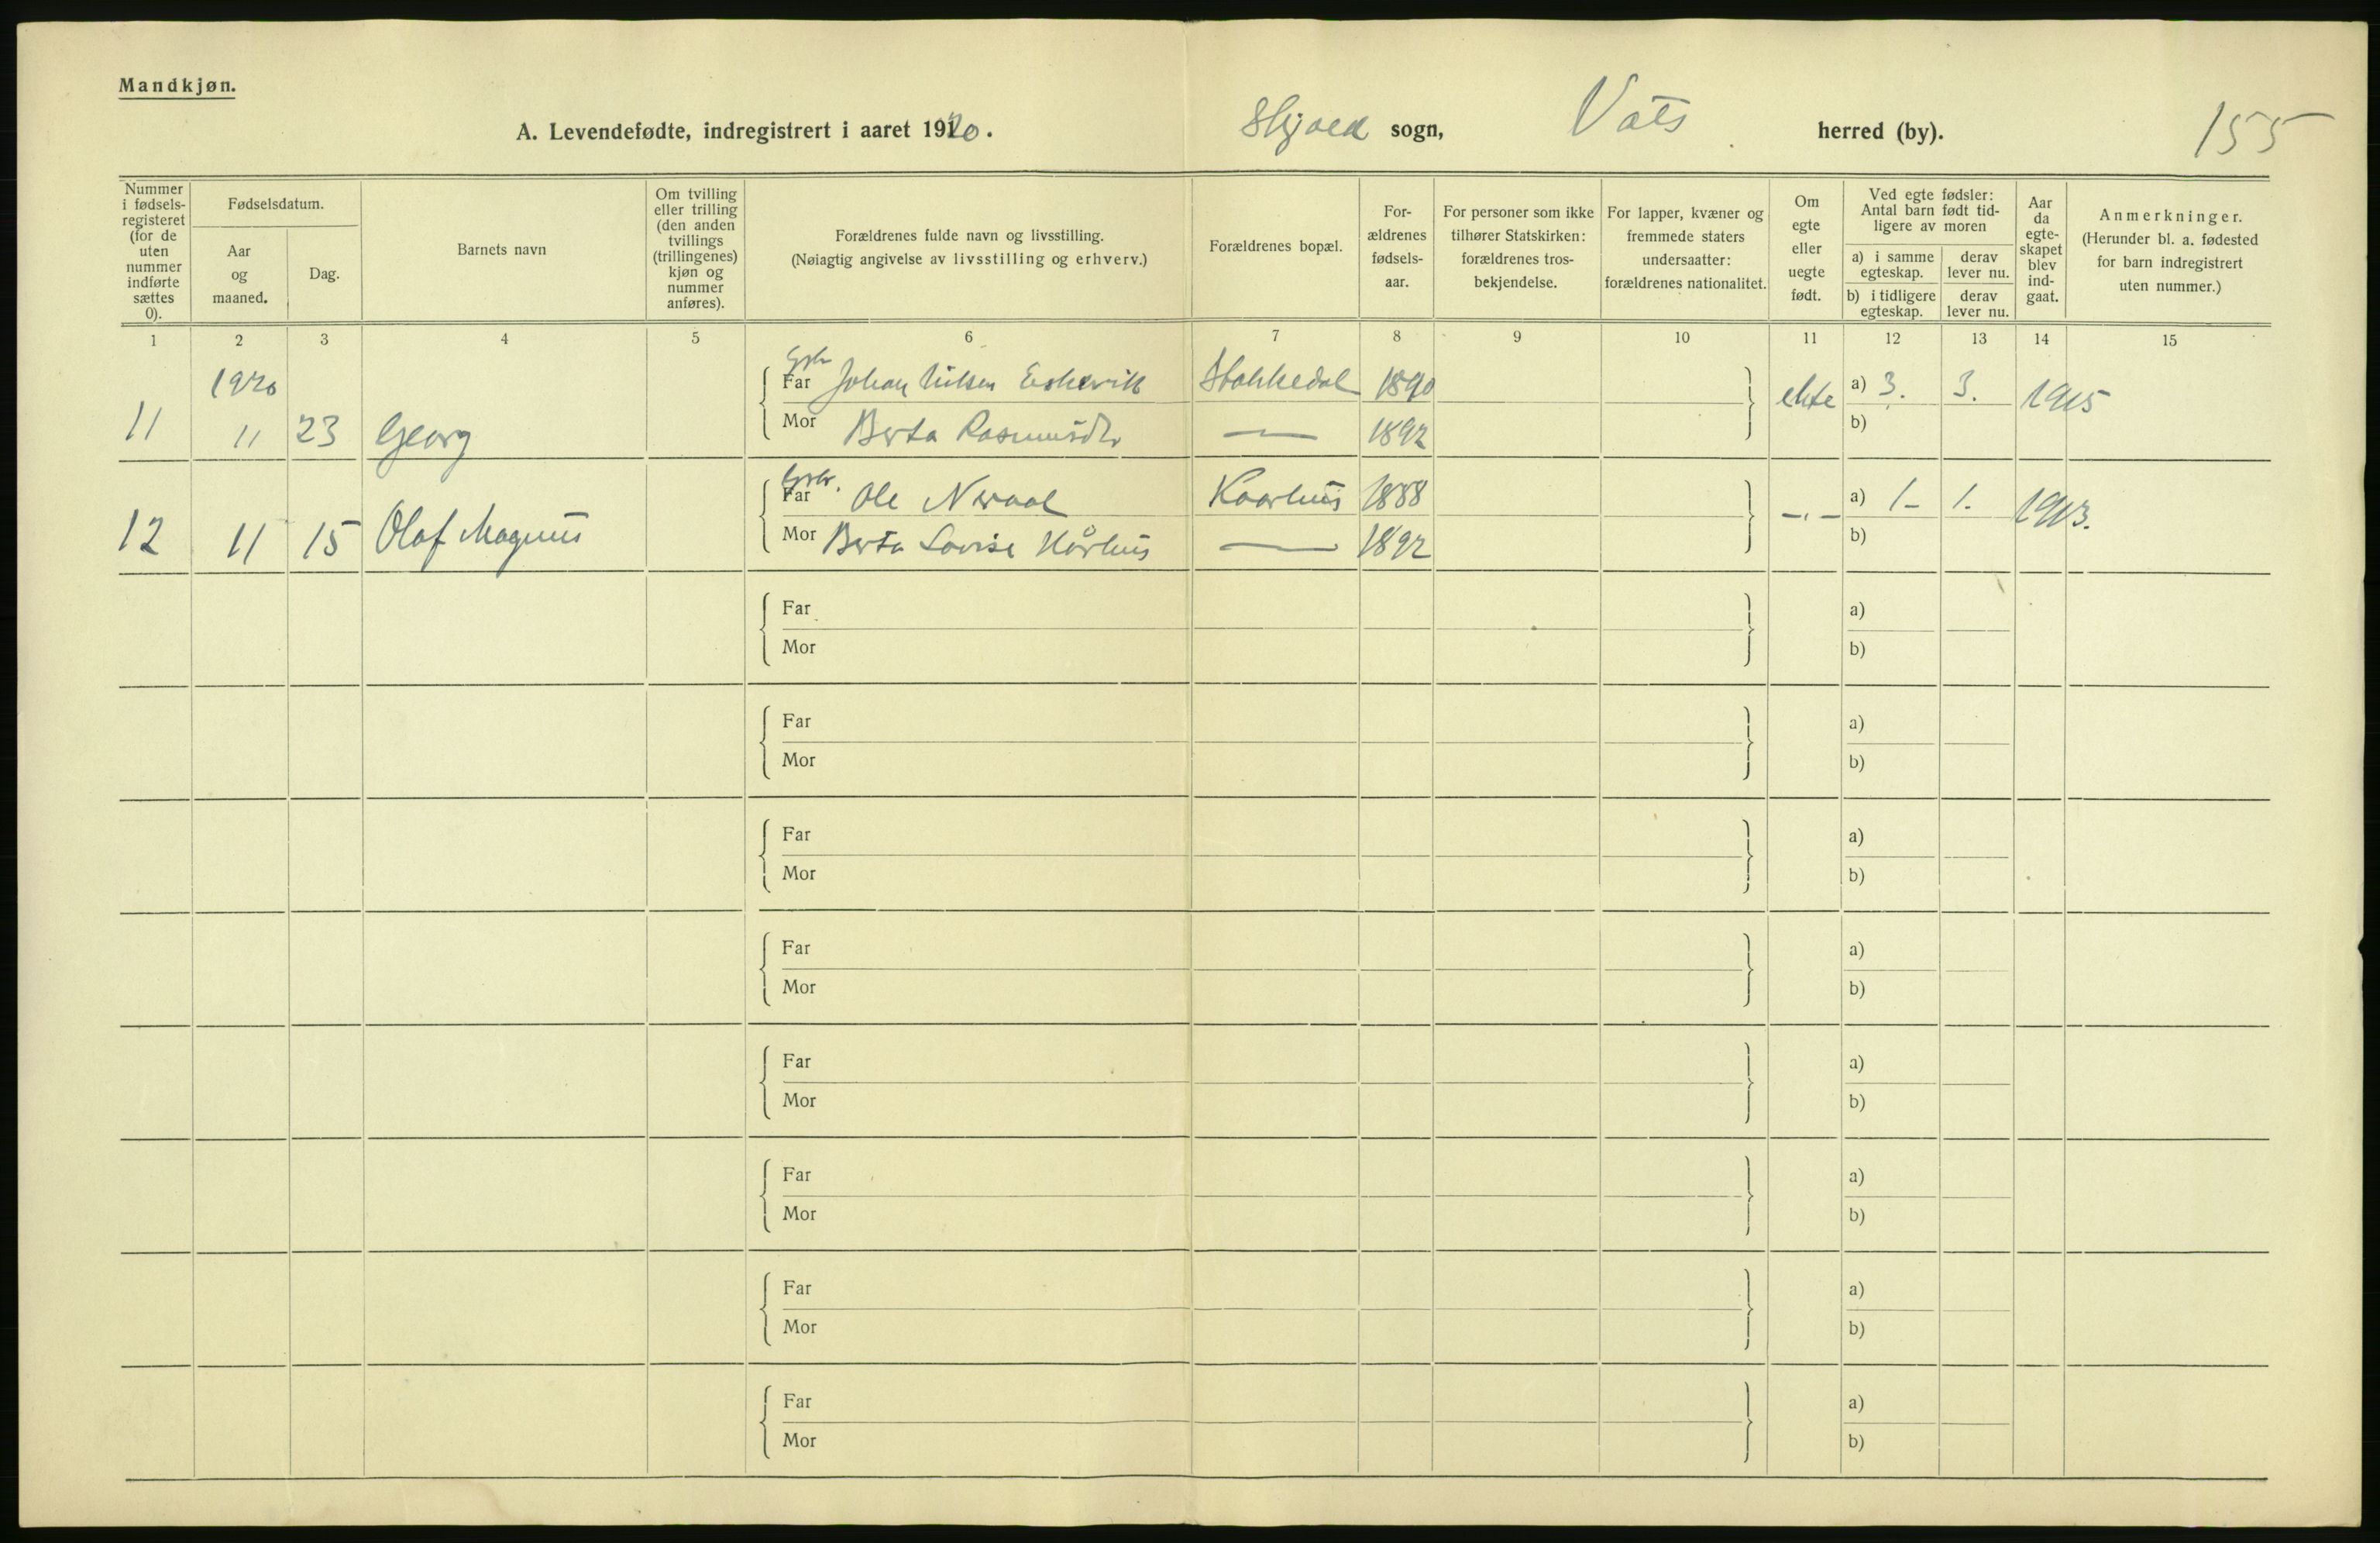 Mandkjøn.
A. Levendefødte, indregistrert i aaret 1920. Skjold sogn, Vats herred (by). 155
Nummer i fødsels-registeret (for de uten nummer indførte sættes 0).
Fødselsdatum.
Aar og maaned.
Dag.
Barnets navn
Om tvilling eller trilling (den anden tvillings (trillingenes) kjøn og nummer anføres).
Forældrenes fulde navn og livsstilling.
(Nøiagtig angivelse av livsstilling og erhverv.)
Forældrenes bopæl.
For-ældrenes fødsels-aar.
For personer som ikke tilhører Statskirken: forældrenes tros-bekjendelse.
For lapper, kvæner og fremmede staters undersaatter: forældrenes nationalitet.
Om egte eller uegte født.
Ved egte fødsler: Antal barn født tid-ligere av moren
a) i samme egteskap.
derav lever nu.
b) i tidligere egteskap.
derav lever nu.
Aar da egte-skapet blev ind-gaat.
Anmerkninger.
(Herunder bl. a. fødested for barn indregistrert uten nummer.)
1 2 3 4 5 6 7 8 9 10 11 12 13 14 15
1920
Far Johan Nilsen Eskevik Stakkedal 1890 ekte a) 3. 3. 1915
11 11 23 Georg Mor Berta Rasmusdtr — 1892 b)
Gbr. Far Ole Neraal Kaarhus 1888 -"- a) 1- 1. 1913.
12 11 15 Olaf Magnus Mor Berta Lovise Hårhus — 1892 b)
Far a)
Mor b)
Far a)
Mor b)
Far a)
Mor b)
Far a)
Mor b)
Far a)
Mor b)
Far a)
Mor b)
Far a)
Mor b)
Far a)
Mor b)